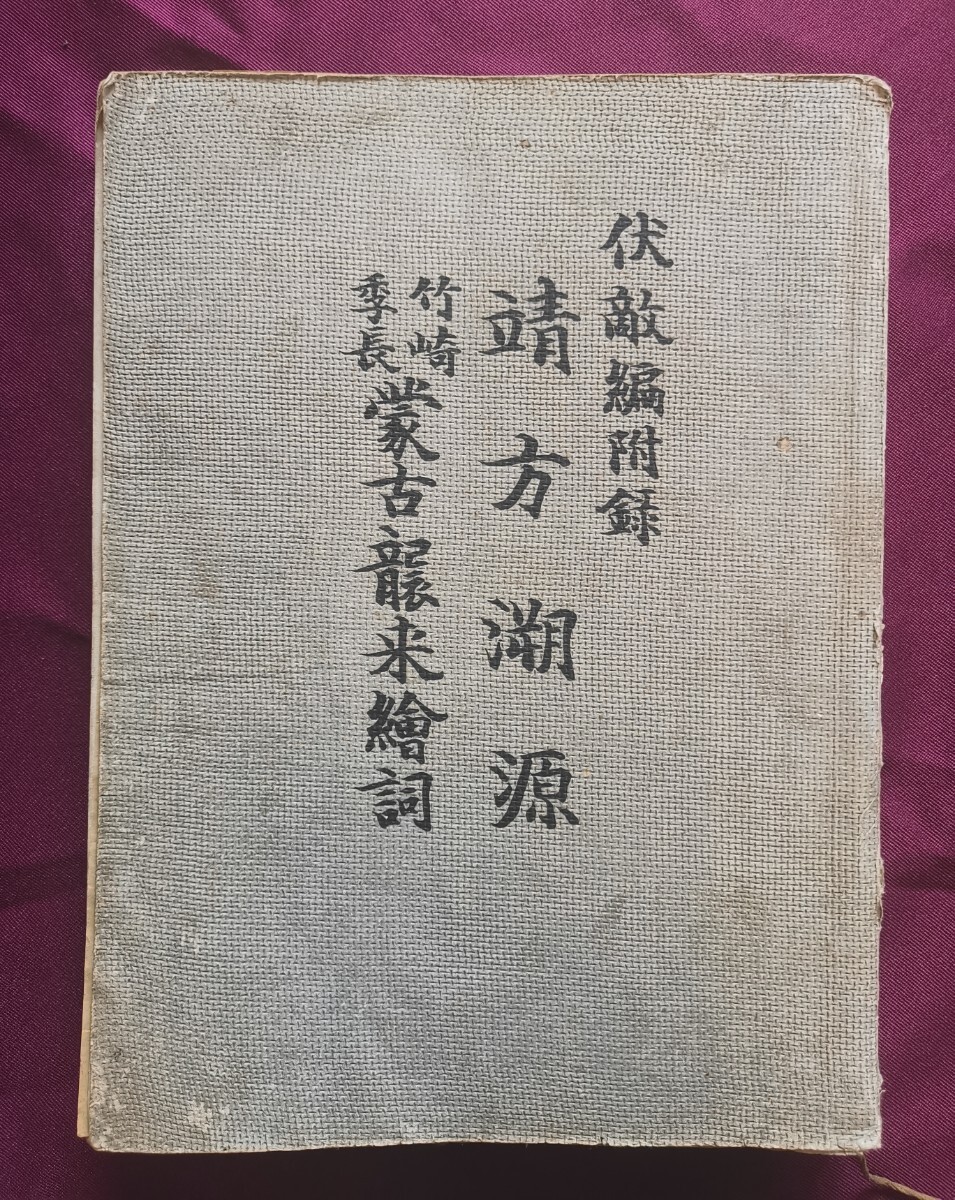 伏敵編附録
靖方溯源
竹崎
季長
蒙古襲来繪詞